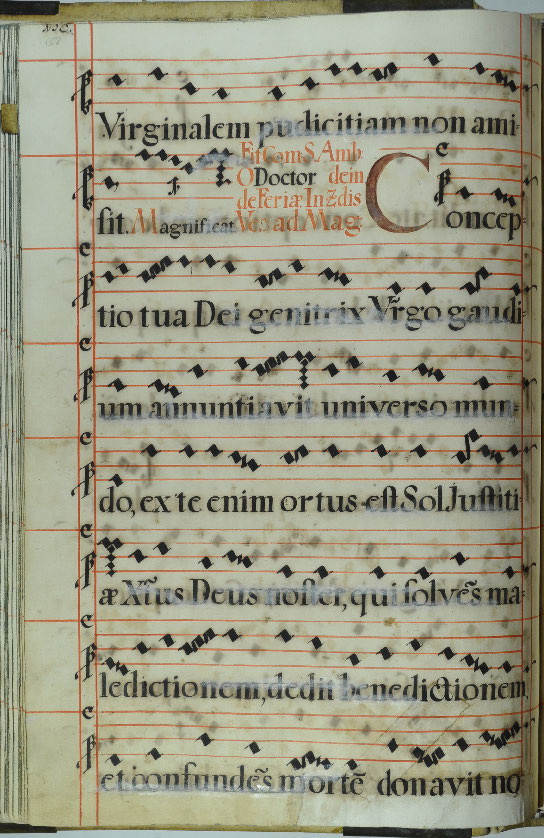 Virginalem pudicitiam non ami-
Fit Com S. Amb
O Doctor dein
de Feriæ In 2. dis
sit. Magnificat. Vt. ad Mag. Concep-
tio tua Dei genitrix Vr̃go gaudi-
um annuntiavit universo mun-
do, ex te enim ortus est Sol Justiti-
æ Xp̃us Deus noster, qui solvẽs ma-
ledictionem, dedit benedictionem,
et confundẽs mortẽ donavit no